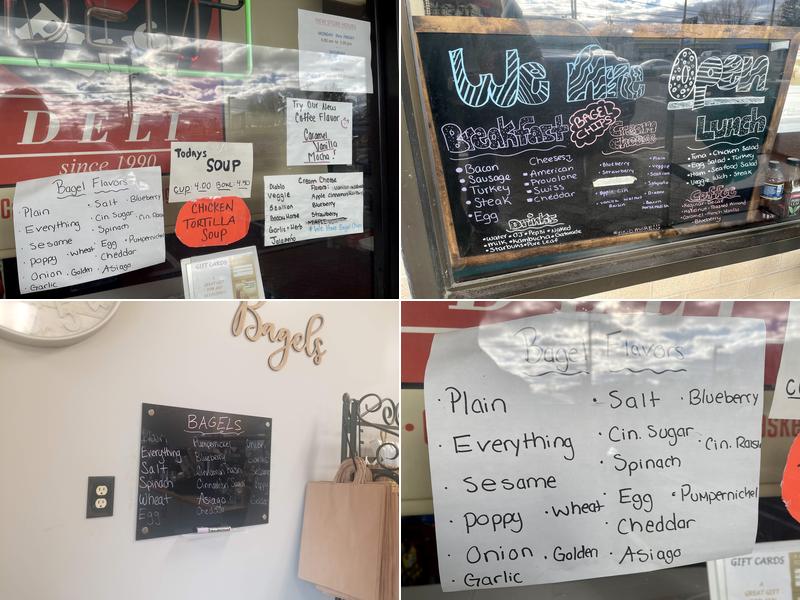 DELI
since 1990
NEW STORE HOURS
Try Our New
Coffee Flavor
Caramel
Vanilla
Mocha!
Todays
SOUP
CUP 4.00 BOWL 4.90
CHICKEN
TORTILLA
SOUP
Bagel Flavors
Plain
Everything
Sesame
Poppy · Wheat
Onion · Golden
Garlic
· Salt · Blueberry
Cin Sugar · Cin. Rais
Spinach
Egg · Pumpernickel
Cheddar
· Asiago
Cream Cheese
Flavors
Diablo
Veggie
Scallion
Bacon Horse
Garlic + Herb
Jalapeño
Apple Cinnamon Raisin
Blueberry
Strawberry
GIFT CARDS
We Are Open
Breakfast
BAGEL
CHIPS
Cream
Cheese
Lunch
Bacon
Sausage
Turkey
Steak
Egg
Cheeses
American
Provolone
Swiss
Cheddar
· Blueberry
· Strawberry
· Plain
· Veggie
· Scallion
· Jalapeño
· Tuna · Chicken Salad
· Egg Salad · Turkey
· Ham · Seafood Salad
· Veggie Wish · Steak
Drinks
· Water · OJ · Pepsi · Naked
· Milk · Kombucha · Gatorade
· Starbucks · Pure Leaf
Coffee
Blueberry
Bagels
BAGELS
Plain
Everything
Salt
Spinach
Wheat
Egg
Pumpernickel
Blueberry
Cinnamon Raisin
Cinnamon Sugar
Asiago
Cheddar
Onion
Garlic
Sesame
Poppy
Golden
Bagel Flavors
· Plain
· Everything
· Sesame
· Poppy · Wheat
· Onion · Golden
· Garlic
· Salt · Blueberry
· Cin. Sugar · Cin. Raisi
· Spinach
· Egg · Pumpernickel
· Cheddar
· Asiago
GIFT CARDS
A
GREAT GIFT